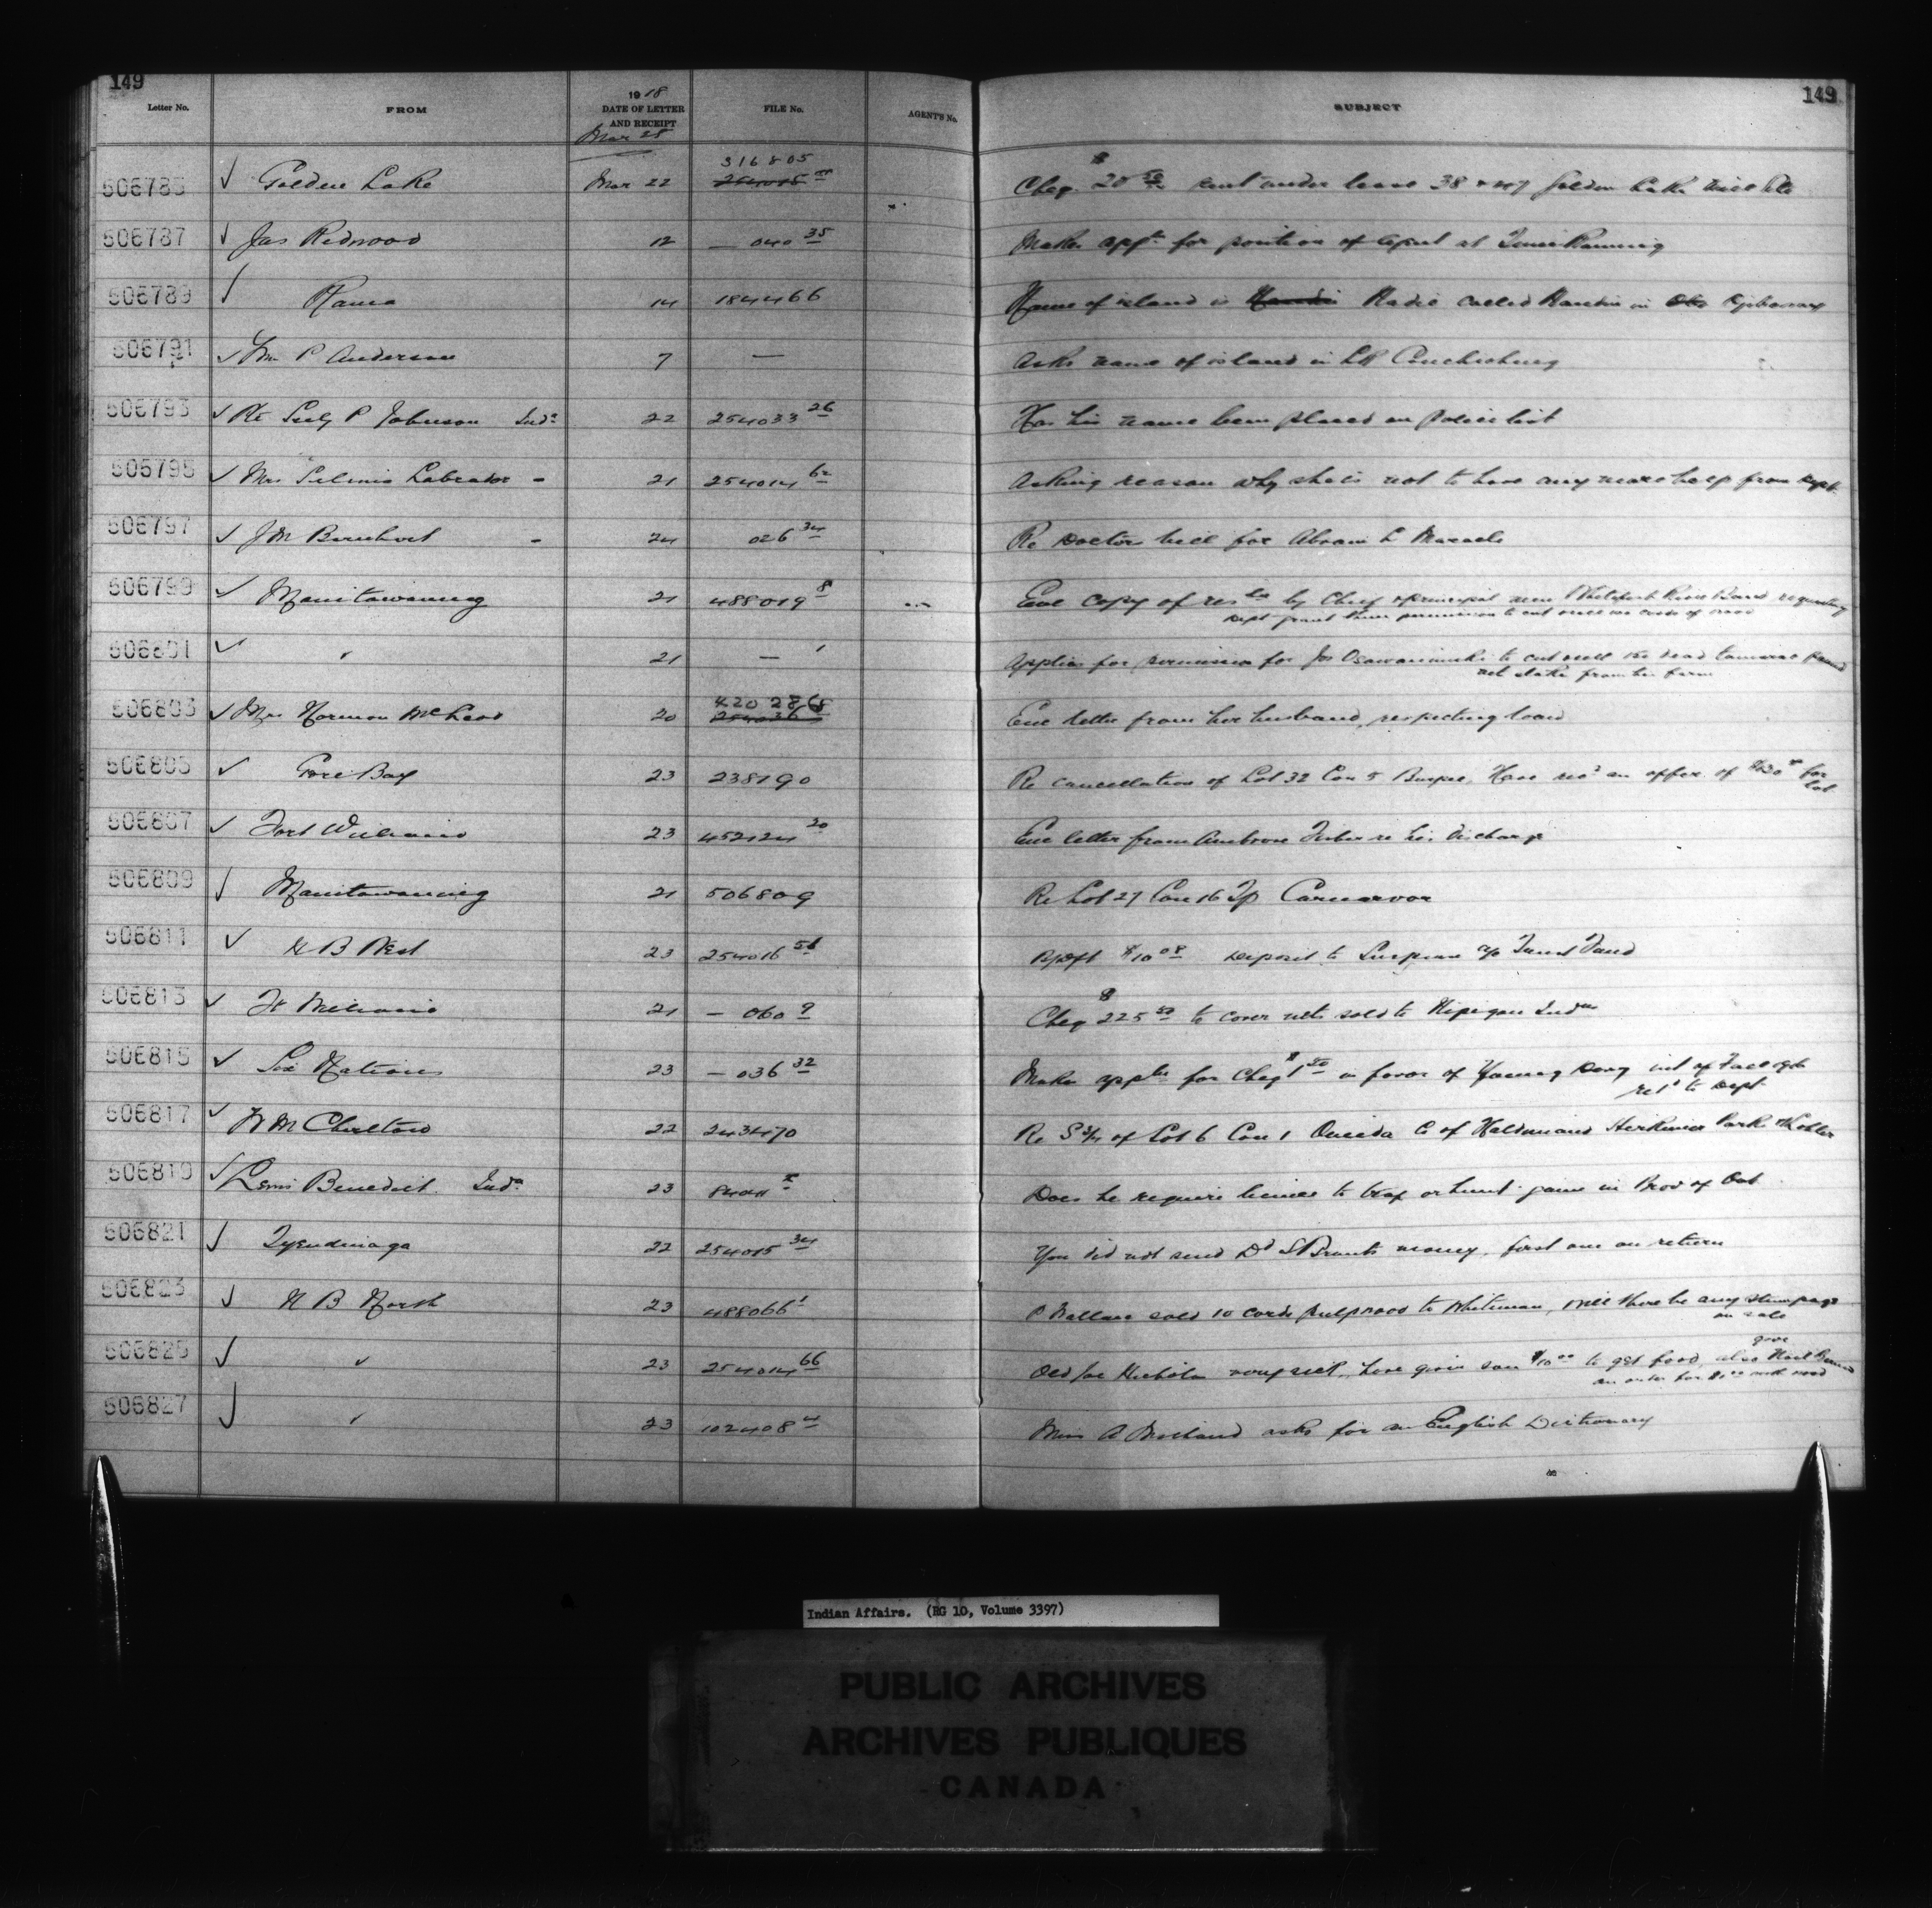 149
149
Letter No. FROM 1918 DATE OF LETTER AND RECEIPT FILE No. AGENT'S No. SUBJECT
Mar 25
316805
506785 ✓ Golden Lake Mar 22 254015 Cheq. $20 rent under lease 38 Golden Lake
506787 ✓ Jas Redwood 12 — 040 35 Makes appn for position of Agent at
506789 ✓ Rama 14 184466 Name of island is called in
506791 ✓ Wm P Anderson 7 — Asks name of island in LK Couchiching
506793 ✓ Pte P Johnson Indn 22 254033 26 Has his name been placed on police list
506795 ✓ Mrs Labrador - 21 254014 62 Asking reason why she is not to have any more help from Dept.
506797 ✓ J M - 24 026 34 Re Doctor bill for Abram L Maracle
506799 ✓ Manitowaning 21 488019 8 Enc copy of by Chief & principal men Whitefish River Band requesting
Dept grant them permission to cut & sell cords of wood
506801 ✓ " 21 — 1 Applies for permission for Jos to cut & sell dead tamarac
from his farm
506803 ✓ Mrs Norman McLeod 20 420 286 Enc letter from her husband, respecting loan
506805 ✓ Gore Bay 23 238190 Re cancellation of Lot 32 Con 5 Burpee, Have recd an offer of for
lot
506807 ✓ Fort William 23 452124 20 Enc letter from Ambrose re his discharge
506809 ✓ Manitowaning 21 506809 Re Lot 27 Con 16 Tp Carnarvon
506811 ✓ N B West 23 254016 $10 08 Deposit to a/c Trust Fund
506813 ✓ Ft William 21 — 060 9 Cheq $225 50 to cover nets sold to Nipigon Indns
506815 ✓ Six Nations 23 — 036 32 Makes appln for Cheq in favor of
retd to Dept
506817 ✓ W M Charlton 22 243470 Re of Lot 6 Con 1 Oneida Co of Haldimand Park
506819 ✓ Benedict. Indn 23 8404 Does he require license to trap or hunt game in Prov of Ont
506821 ✓ Tyendinaga 22 254015 34 You did not send Brants money, first one on return
506823 ✓ N B North 23 488066 1 P Wallace sold 10 cords pulpwood to Whiteman, will there be any stumpage
on sale
506825 ✓ " 23 254014 66 Old Joe Nicholas very sick, have given son $10 00 to get food, also give
an order for
506827 ✓ " 23 102408 4 Miss A asks for an English Dictionary
Indian Affairs. (RG 10, Volume 3397)
PUBLIC ARCHIVES
ARCHIVES PUBLIQUES
CANADA